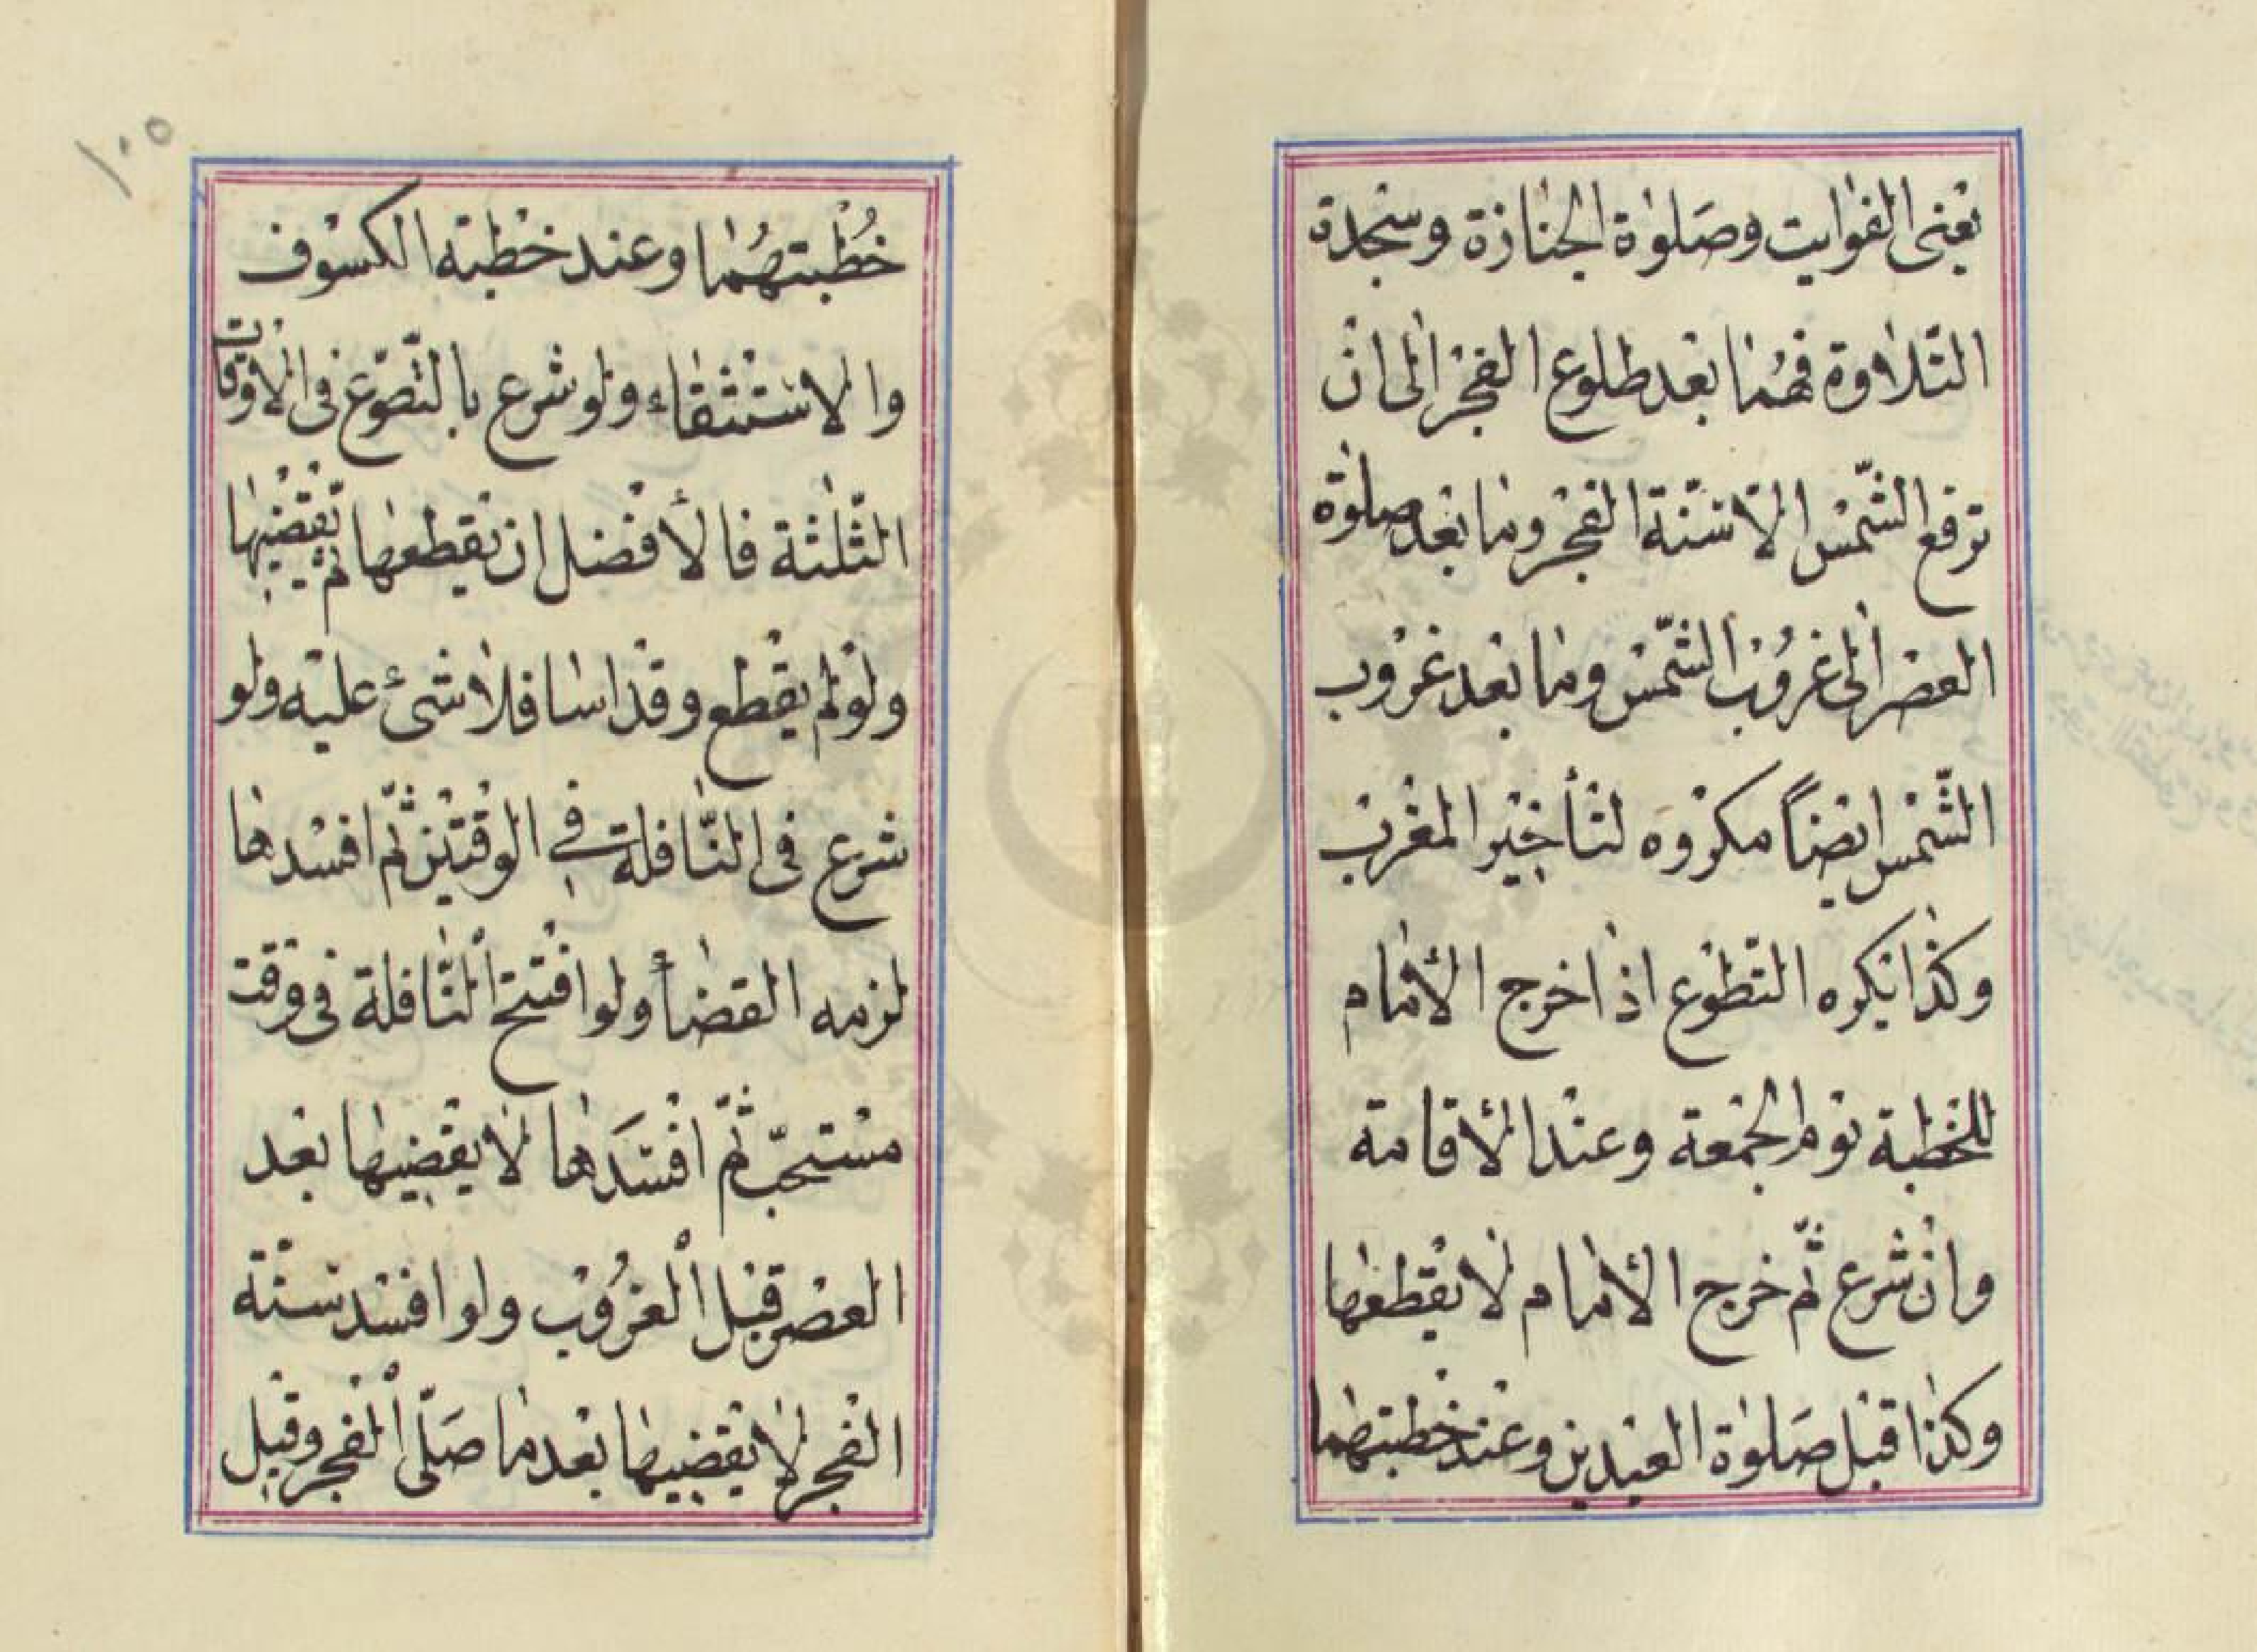 يعنى الفوايت وصلوة الجنازة وسجدة
التلاوة فهما بعد طلوع الفجر الى ان
ترفع الشمس الا سنة الفجر وما بعد صلوة
العصر الى غروب الشمس وما بعد غروب
الشمس ايضاً مكروه لتأخير المغرب
وكذا يكره التطوع اذا خرج الأمام
للخطبة يوم الجمعة وعند الأقامة
وان شرع ثم خرج الأمام لا يقطعها
وكذا قبل صلوة العيدين وعند خطبتهما
١٠٥
خطبتهما وعند خطبة الكسوف
والاستثقاء ولو شرع بالتصوّع فى الاوقات
الثلثة فالأفضل ان يقطعها ثم يقضيها
ولو لم يقطع وقد اسا فلا شئ عليه ولو
شرع فى النافلة في الوقتين ثم افسدها
لزمه القضأ ولو افتتح النافلة فى وقت
مستحبّ ثم افسَدها لا يقضيها بعد
العصر قبل الغروب ولو افسد سنة
الفجر لا يقضيها بعد ما صلّى الفجر وقيل